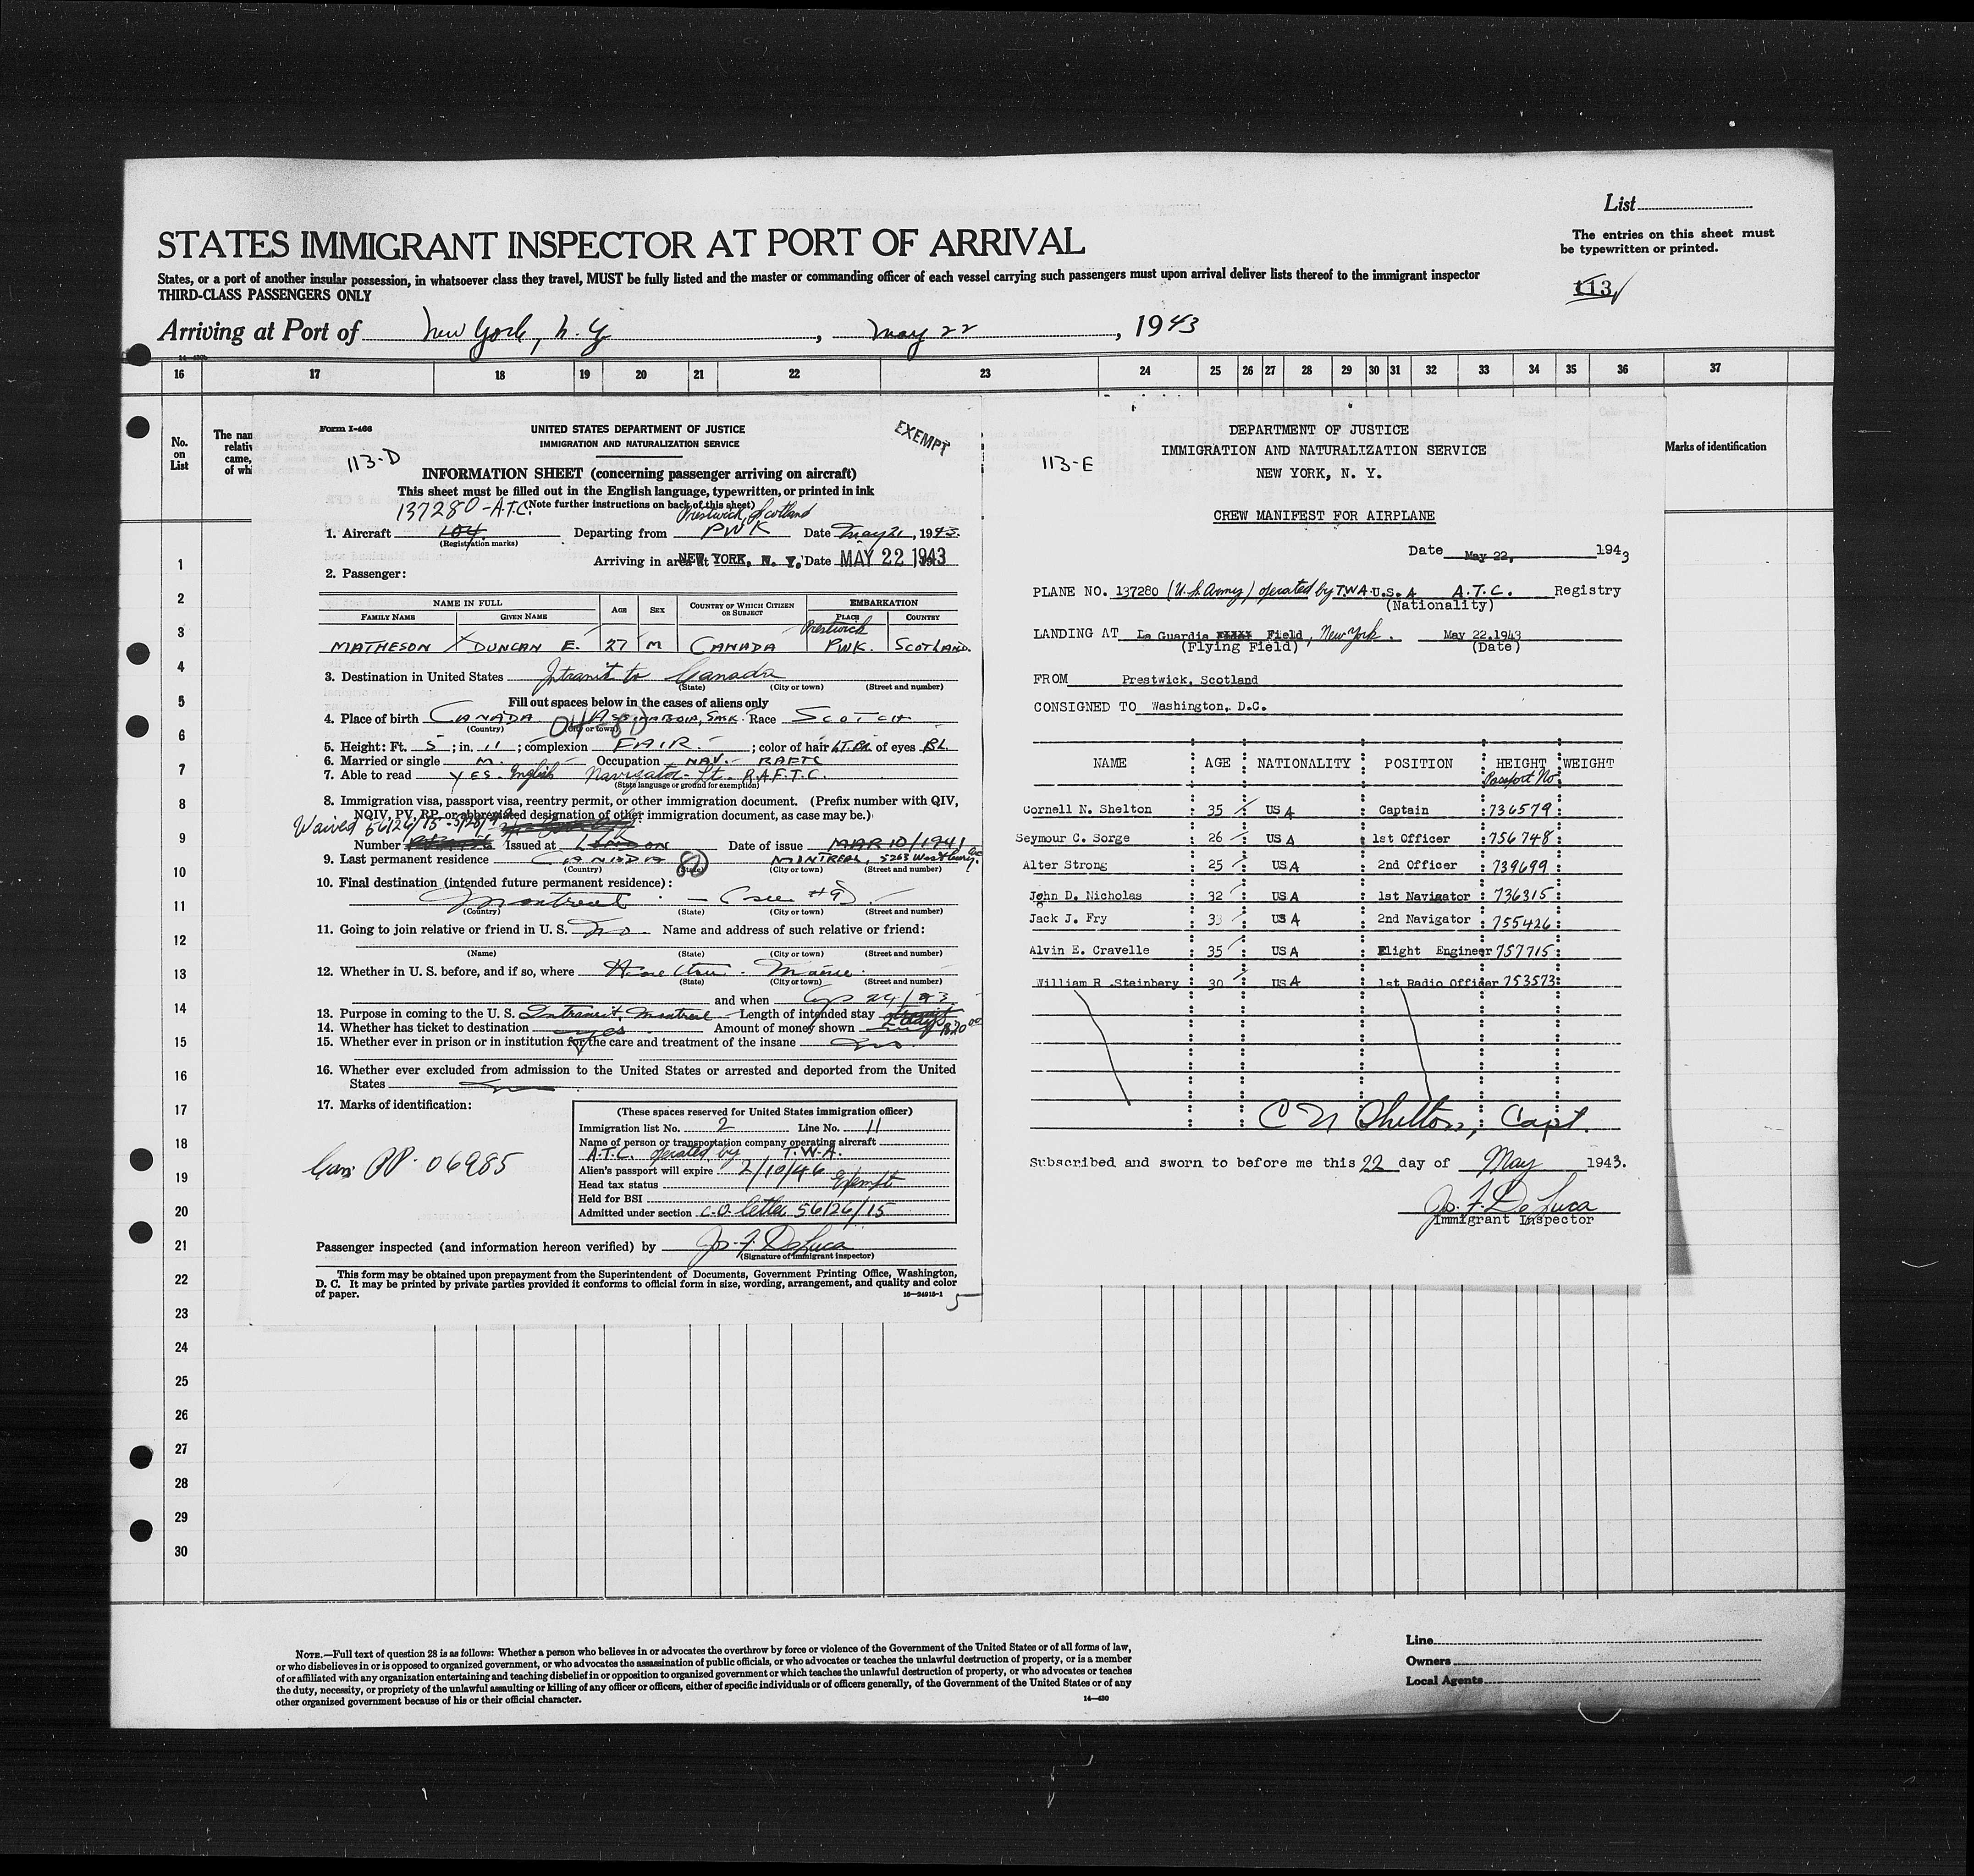 List
STATES IMMIGRANT INSPECTOR AT PORT OF ARRIVAL
The entries on this sheet must
be typewritten or printed.
States, or a port of another insular possession, in whatsoever class they travel, MUST be fully listed and the master or commanding officer of each vessel carrying such passengers must upon arrival deliver lists thereof to the immigrant inspector
THIRD-CLASS PASSENGERS ONLY
113
Arriving at Port of New York, N. Y, May 22, 1943
16 17 18 19 20 21 22 23 24 25 26 27 28 29 30 31 32 33 34 35 36 37
No.
on
List
The nam
relativ
came,
of wh
Marks of identification
1
2
3
4
5
6
7
8
9
10
11
12
13
14
15
16
17
18
19
20
21
22
23
24
25
26
27
28
29
30
Form I-466
UNITED STATES DEPARTMENT OF JUSTICE
IMMIGRATION AND NATURALIZATION SERVICE
EXEMPT
113-D
INFORMATION SHEET (concerning passenger arriving on aircraft)
This sheet must be filled out in the English language, typewritten, or printed in ink
137280-A.T.C. (Note further instructions on back of this sheet)
Prestwick, Scotland
1. Aircraft 104 Departing from PWK Date May 21, 1943
(Registration marks)
Arriving in area at NEW YORK, N. Y. Date MAY 22 1943
2. Passenger:
NAME IN FULL AGE SEX COUNTRY OF WHICH CITIZEN OR SUBJECT EMBARKATION
FAMILY NAME GIVEN NAME PLACE COUNTRY
Prestwick
MATHESON DUNCAN E. 27 M CANADA PWK. SCOTLAND.
3. Destination in United States Intransit to Canada
(State) (City or town) (Street and number)
Fill out spaces below in the cases of aliens only
4. Place of birth CANADA ASSINABOIA, SASK. Race SCOTCH
(Country) (City or town)
5. Height: Ft. 5; in. 11; complexion FAIR.; color of hair LT.BR. of eyes BL.
6. Married or single M. Occupation NAV. - RAFTC
7. Able to read YES. English Navigator - Lt. R.A.F.T.C.
(State language or ground for exemption)
8. Immigration visa, passport visa, reentry permit, or other immigration document. (Prefix number with QIV,
NQIV, PV, RP, or abbreviated designation of other immigration document, as case may be.)
Waived 56126/15
Number Issued at LONDON Date of issue MAR 10/1941
9. Last permanent residence CANADA MONTREAL, 5263 Westbury
(Country) (State) (City or town) (Street and number)
10. Final destination (intended future permanent residence):
Montreal - (see #9)
(Country) (State) (City or town) (Street and number)
11. Going to join relative or friend in U. S. No. Name and address of such relative or friend:
(Name) (State) (City or town) (Street and number)
12. Whether in U. S. before, and if so, where Houlton. Maine.
(State) (City or town) (Street and number)
and when
13. Purpose in coming to the U. S. Intransit, Montreal Length of intended stay
14. Whether has ticket to destination yes Amount of money shown
15. Whether ever in prison or in institution for the care and treatment of the insane No.
16. Whether ever excluded from admission to the United States or arrested and deported from the United
States No
17. Marks of identification:
Can: PP. 06985
(These spaces reserved for United States immigration officer)
Immigration list No. 2 Line No. 11
Name of person or transportation company operating aircraft
A.T.C. operated by T.W.A.
Alien's passport will expire 2/10/46
Head tax status Exempt
Held for BSI
Admitted under section C.O. letter 56126/15
Passenger inspected (and information hereon verified) by Jos. F. DeLuca
(Signature of immigrant inspector)
This form may be obtained upon prepayment from the Superintendent of Documents, Government Printing Office, Washington,
D. C. It may be printed by private parties provided it conforms to official form in size, wording, arrangement, and quality and color
of paper.
16-24915-1
5
113-E
DEPARTMENT OF JUSTICE
IMMIGRATION AND NATURALIZATION SERVICE
NEW YORK, N. Y.
CREW MANIFEST FOR AIRPLANE
Date May 22, 1943
PLANE NO. 137280 (U.S. Army) operated by TWA U.S.A A.T.C. Registry
(Nationality)
LANDING AT La Guardia Field, New York. May 22.1943
(Flying Field) (Date)
FROM Prestwick, Scotland
CONSIGNED TO Washington, D.C.
NAME AGE NATIONALITY POSITION HEIGHT WEIGHT
Passport No.
Cornell N. Shelton 35 USA Captain 736579
Seymour C. Sorge 26 USA 1st Officer 756748
Alter Strong 25 USA 2nd Officer 739699
John D. Nicholas 32 USA 1st Navigator 736315
Jack J. Fry 33 USA 2nd Navigator 755426
Alvin E. Cravelle 35 USA Flight Engineer 757715
William R. Steinbery 30 USA 1st Radio Officer 753573
C N Shelton, Capt.
Subscribed and sworn to before me this 22 day of May 1943.
Jos. F. DeLuca
Immigrant Inspector
NOTE.—Full text of question 28 is as follows: Whether a person who believes in or advocates the overthrow by force or violence of the Government of the United States or of all forms of law,
or who disbelieves in or is opposed to organized government, or who advocates the assassination of public officials, or who advocates or teaches the unlawful destruction of property, or is a member
of or affiliated with any organization entertaining and teaching disbelief in or opposition to organized government or which teaches the unlawful destruction of property, or who advocates or teaches
the duty, necessity, or propriety of the unlawful assaulting or killing of any officer or officers, either of specific individuals or of officers generally, of the Government of the United States or of any
other organized government because of his or their official character.
14-430
Line
Owners
Local Agents